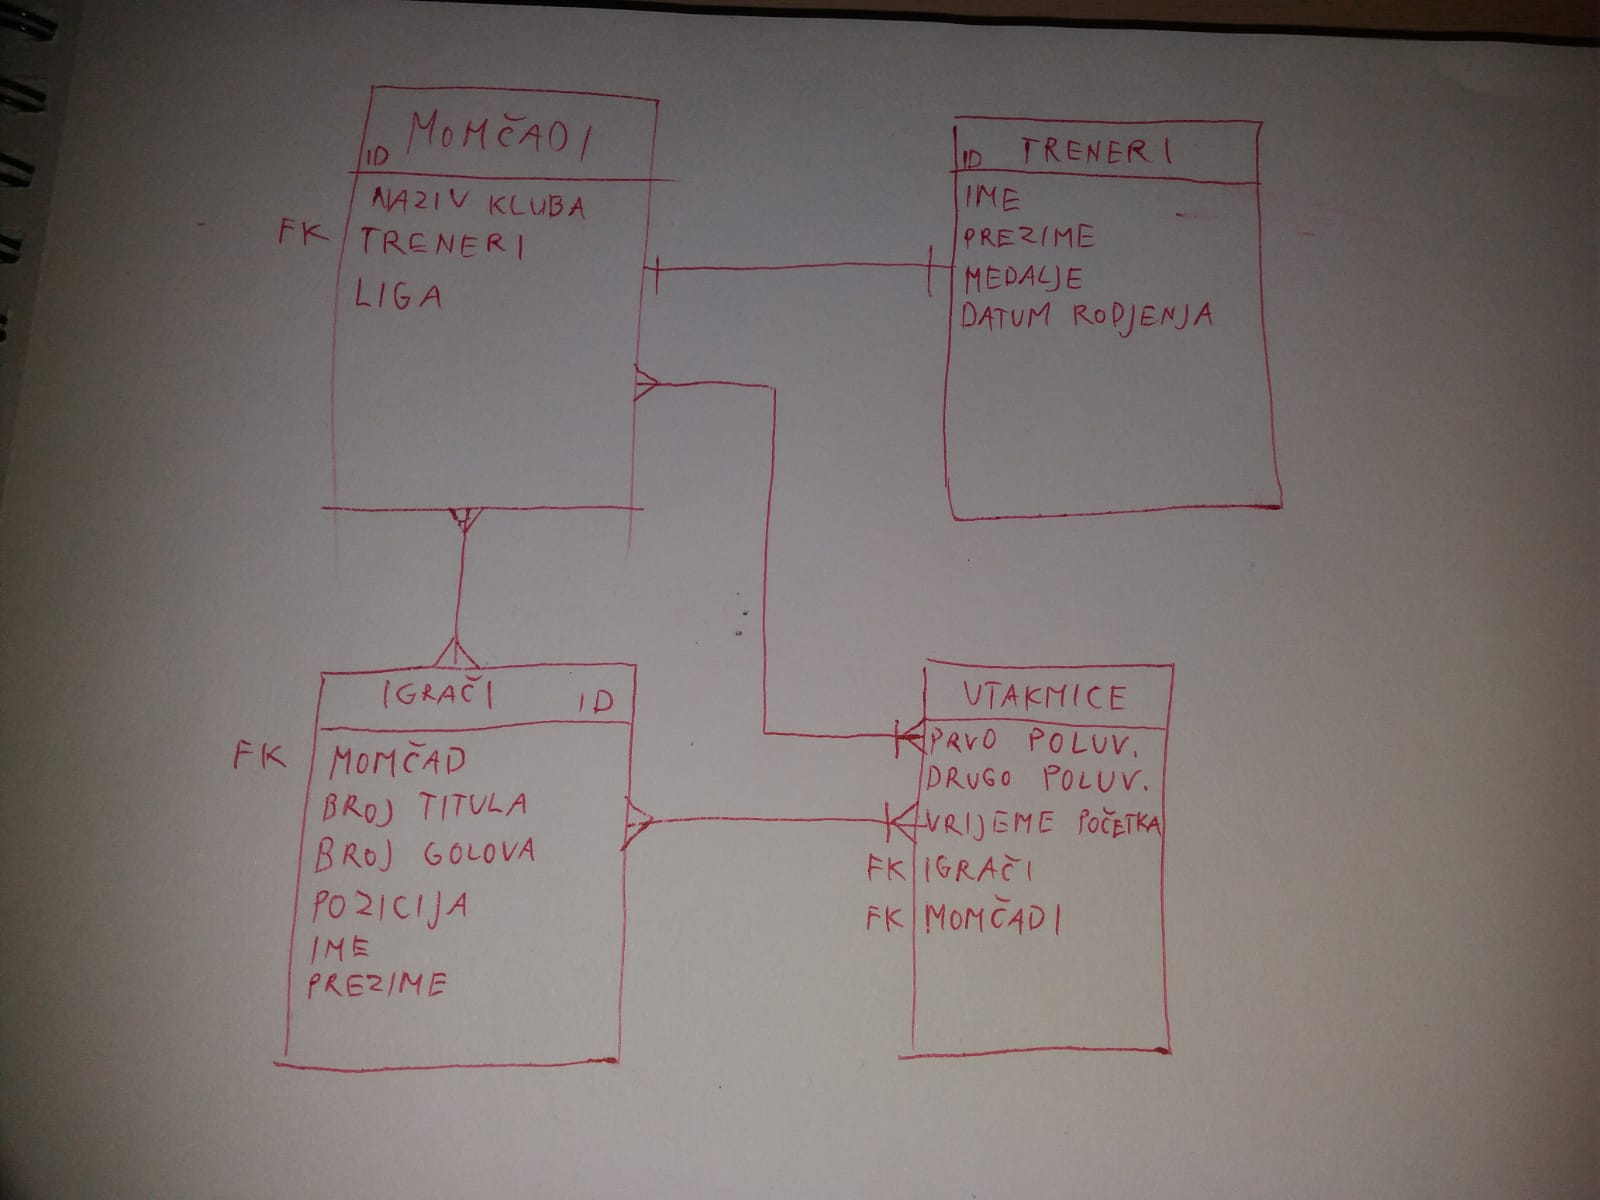 MOMČADI
ID
NAZIV KLUBA
FK TRENERI
LIGA
ID TRENERI
IME
PREZIME
MEDALJE
DATUM RODJENJA
IGRAČI ID
FK MOMČAD
BROJ TITULA
BROJ GOLOVA
POZICIJA
IME
PREZIME
UTAKMICE
PRVO POLUV.
DRUGO POLUV.
VRIJEME POČETKA
FK IGRAČI
FK MOMČADI